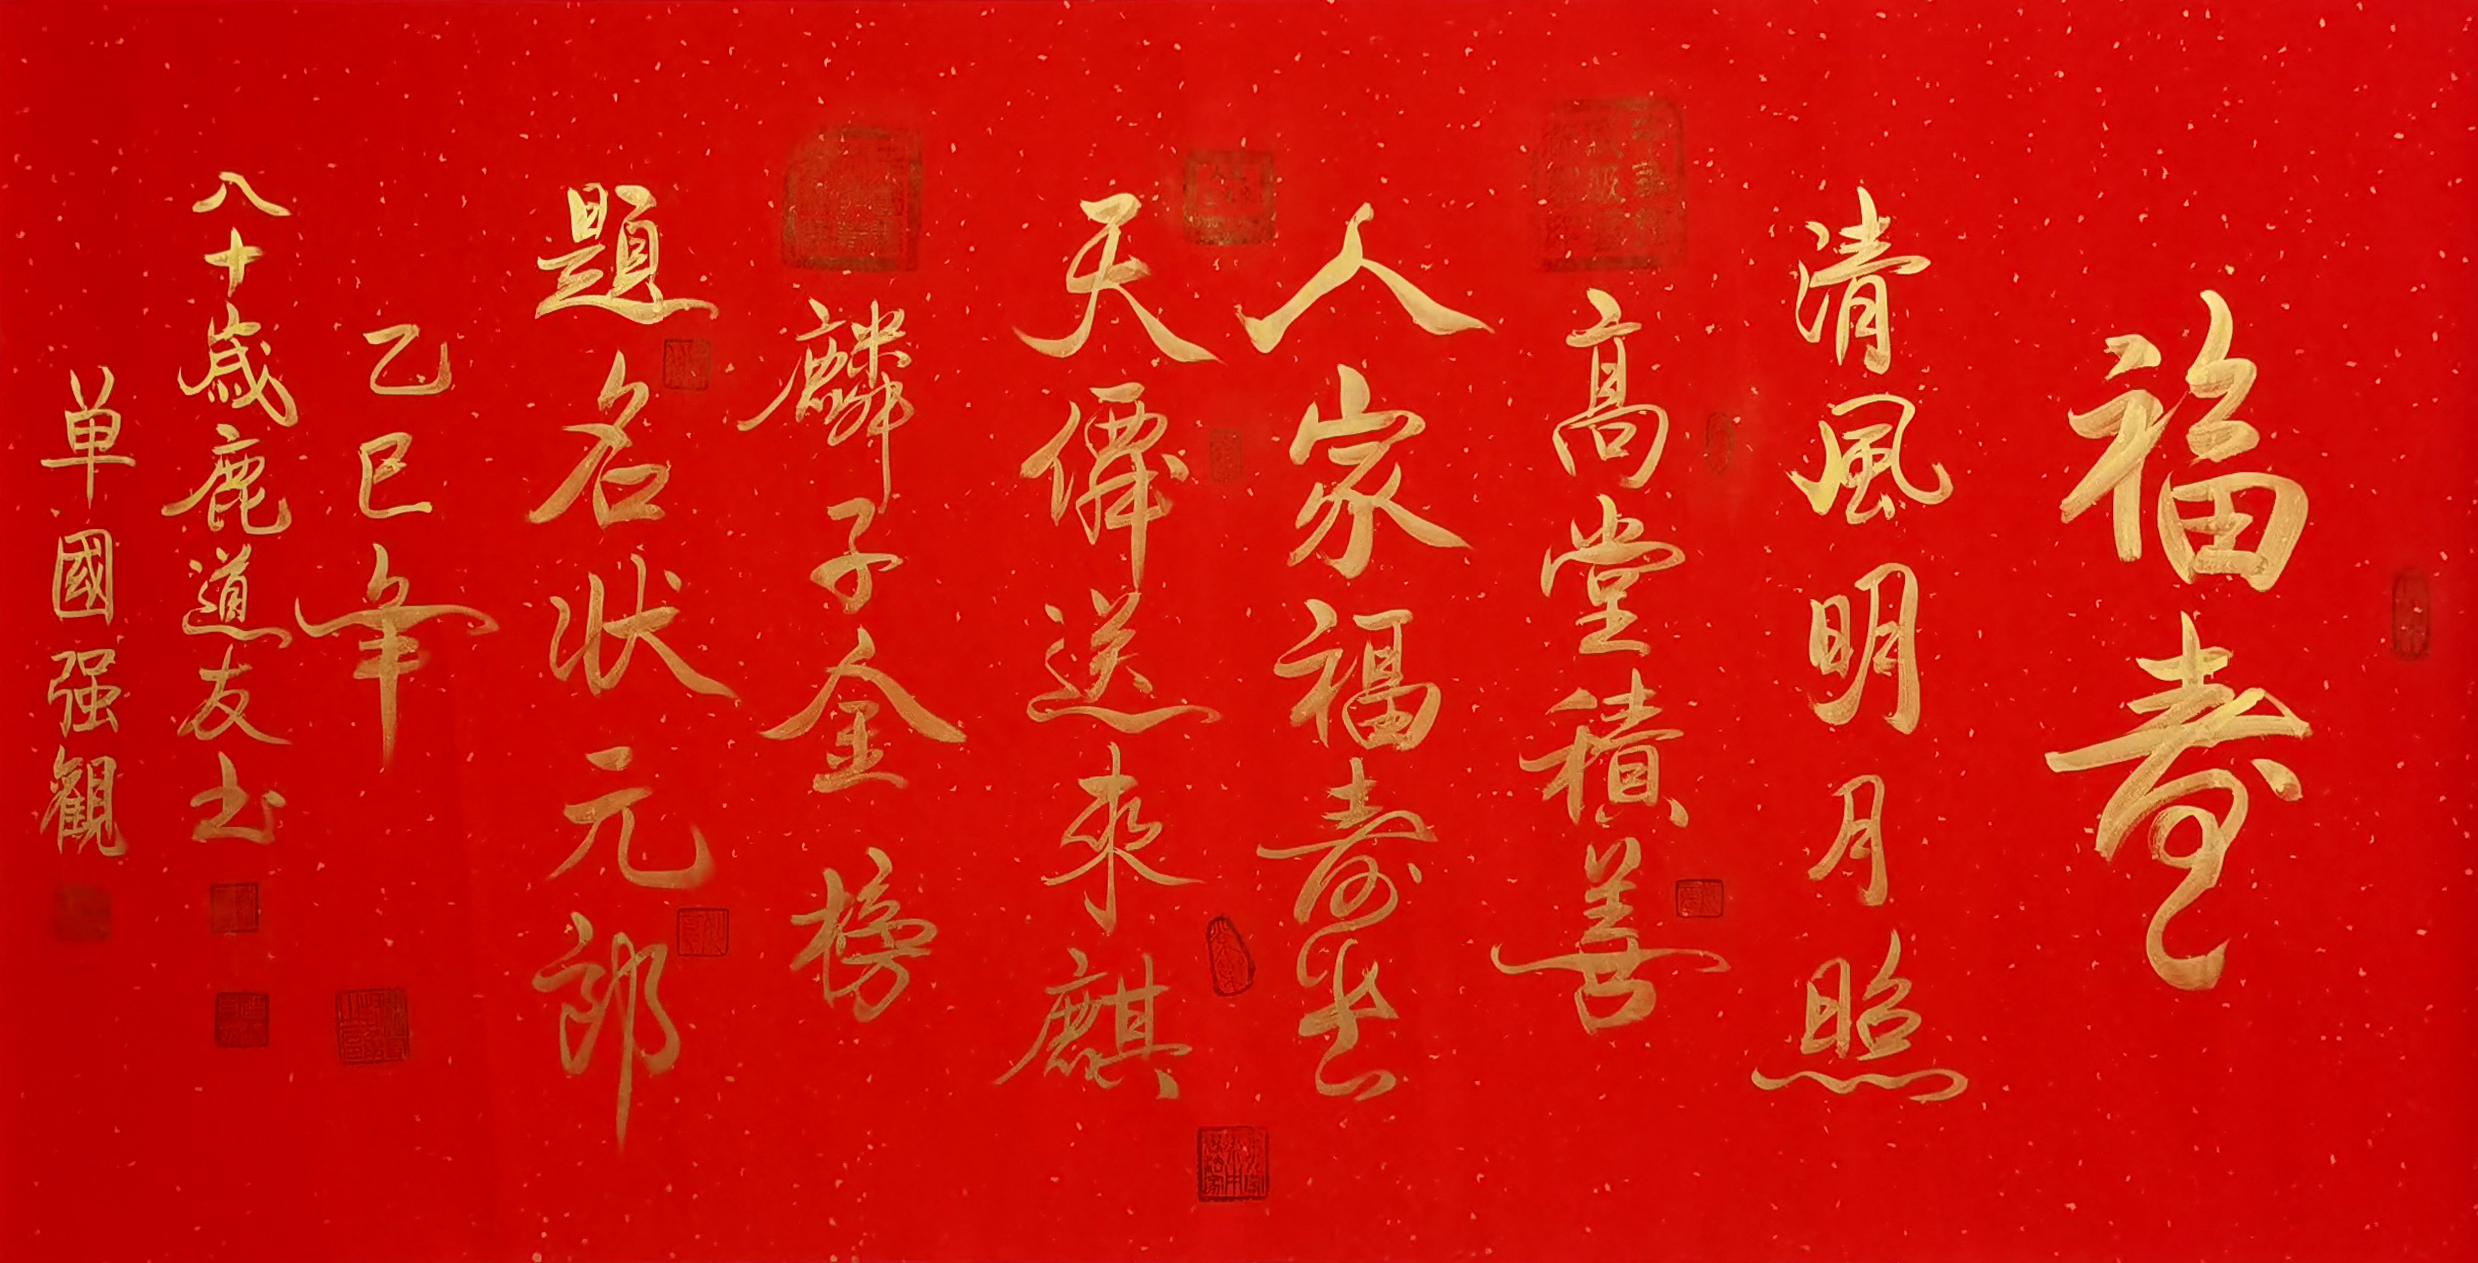 福壽
清風明月照
高堂積善
人家福壽長
天僊送來麒
麟子金榜
題名狀元郎
乙巳年
八十歲鹿道友书
单國强觀